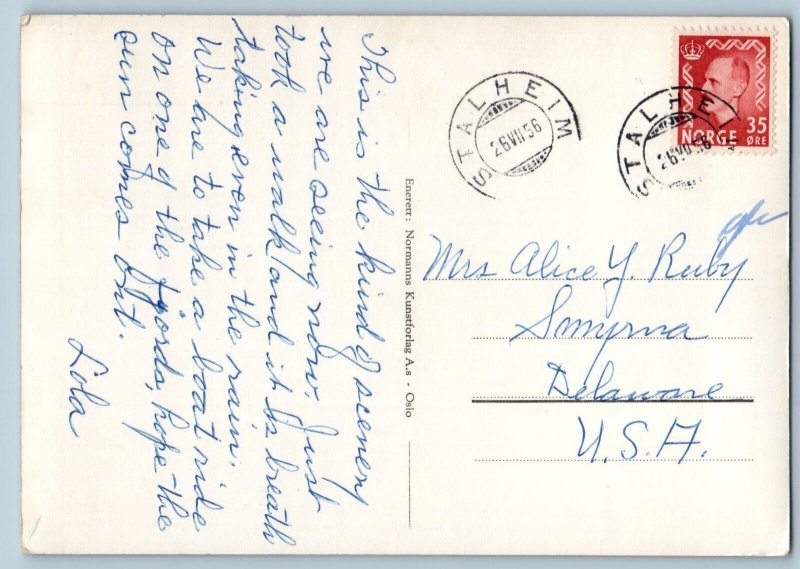 This is the kind of scenery
we are seeing now. Just
took a walk and it is breath
taking even in the rain.
We are to take a boat ride
on one of the fjords, hope the
sun comes out.
Lola
Enerett: Normanns Kunstforlag A.s - Oslo
STALHEIM
26 VII 56
STALHE
26 VII 56
NORGE 35
ØRE
Mrs Alice Y. Ruby
Smyrna
Delaware
U.S.A.